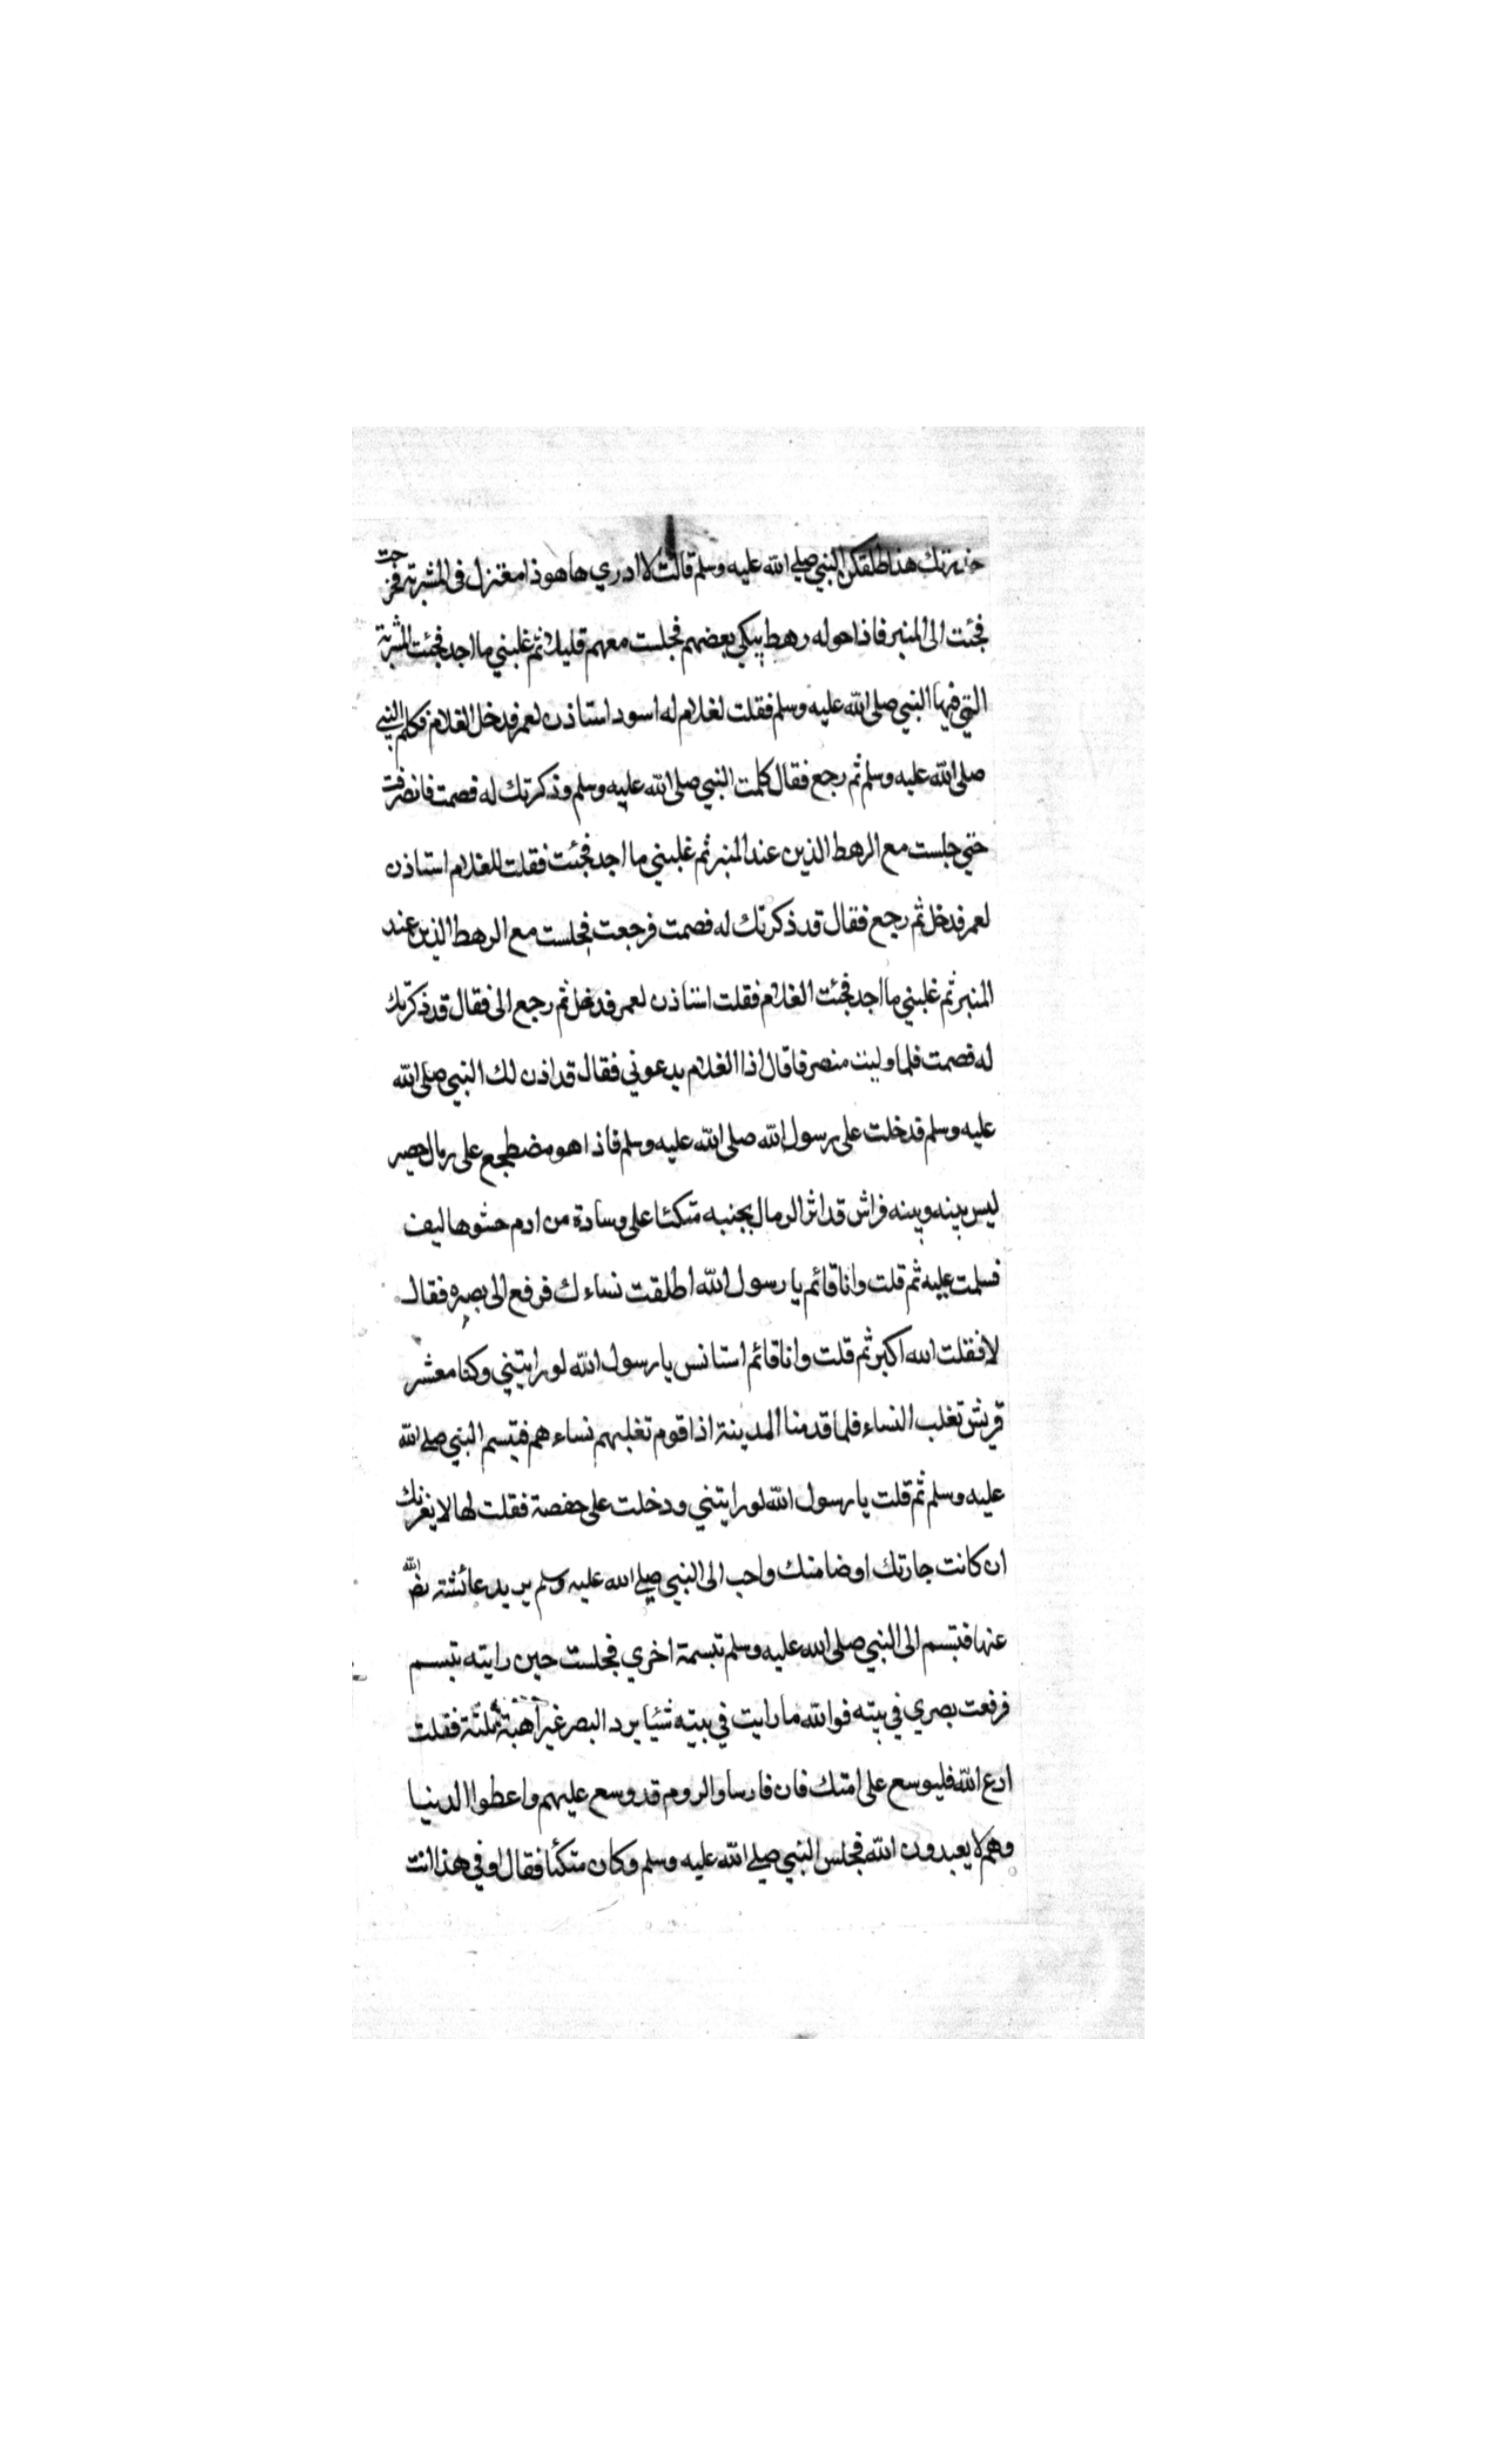 حذرتك هذا طلقكن النبي صلى الله عليه وسلم قالت لا ادري ها هو ذا معتزل في المشربة فخرجت
فجئت الى المنبر فاذا حوله رهط يبكي بعضهم فجلست معهم قليلا ثم غلبني ما اجد فجئت المشربة
التي فيها النبي صلى الله عليه وسلم فقلت لغلام له اسود استاذن لعمر فدخل الغلام فكلم النبي
صلى الله عليه وسلم ثم رجع فقال كلمت النبي صلى الله عليه وسلم وذكرتك له فصمت فانصرفت
حتي جلست مع الرهط الذين عند المنبر ثم غلبني ما اجد فجئت فقلت للغلام استاذن
لعمر فدخل ثم رجع فقال قد ذكرتك له فصمت فرجعت فجلست مع الرهط الذين عند
المنبر ثم غلبني ما اجد فجئت الغلام فقلت استاذن لعمر فدخل ثم رجع الى فقال قد ذكرتك
له فصمت فلما وليت منصرفا قال اذا الغلام يدعوني فقال قد اذن لك النبي صلى الله
عليه وسلم فدخلت على رسول الله صلى الله عليه وسلم فاذا هو مضطجع على رمال حصير
ليس بينه وبينه فراش قد اثر الرمال بجنبه متكئا على وسادة من ادم حشوها ليف
فسلمت عليه ثم قلت وانا قائم يا رسول الله اطلقت نساءك فرفع الى بصره فقال
لا فقلت الله اكبر ثم قلت وانا قائم استانس يا رسول الله لو رايتني وكنا معشر
قريش نغلب النساء فلما قدمنا المدينة اذا قوم تغلبهم نساءهم فتبسم النبي صلى الله
عليه وسلم ثم قلت يا رسول الله لو رايتني ودخلت على حفصة فقلت لها لا يغرنك
ان كانت جارتك اوضا منك واحب الى النبي صلى الله عليه وسلم يريد عائشة رضي الله
عنها فتبسم الى النبي صلى الله عليه وسلم تبسمة اخري فجلست حين رايته تبسم
فرفعت بصري في بيته فوالله ما رايت في بيته شيئا يرد البصر غير اهبة ثلثة فقلت
ادع الله فليوسع على امتك فان فارسا والروم قد وسع عليهم واعطوا الدنيا
وهم لا يعبدون الله فجلس النبي صلى الله عليه وسلم وكان متكئا فقال اوفي هذا انت